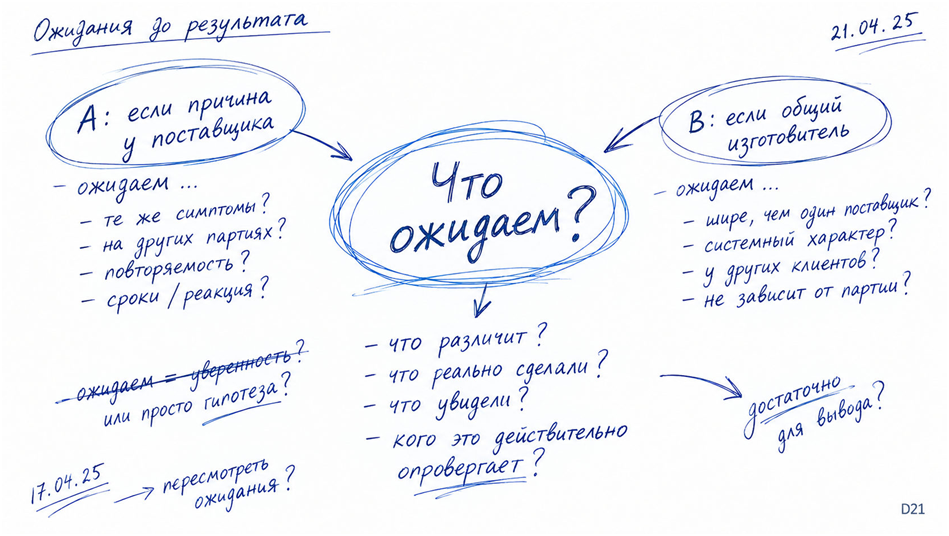 Ожидания до результата
21.04.25
А: если причина
у поставщика
- ожидаем ...
- те же симптомы?
- на других партиях?
- повторяемость?
- сроки / реакция?
В: если общий
изготовитель
- ожидаем ...
- шире, чем один поставщик?
- системный характер?
- у других клиентов?
- не зависит от партии?
Что
ожидаем?
- что различит?
- что реально сделали?
- что увидели?
- кого это действительно
опровергает?
достаточно
для вывода?
- ожидаем = уверенность?
или просто гипотеза?
17.04.25
→ пересмотреть
ожидания?
D21